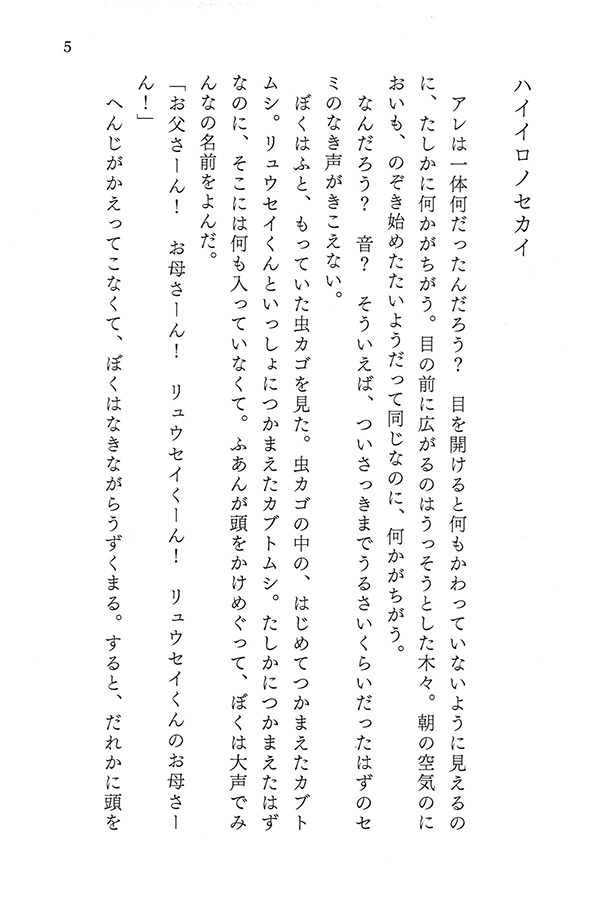 5
ハイイロノセカイ
　アレは一体何だったんだろう？　目を開けると何もかわっていないように見えるの
に、たしかに何かがちがう。目の前に広がるのはうっそうとした木々。朝の空気のに
おいも、のぞき始めたたいようだって同じなのに、何かがちがう。
　なんだろう？　音？　そういえば、ついさっきまでうるさいくらいだったはずのセ
ミのなき声がきこえない。
　ぼくはふと、もっていた虫カゴを見た。虫カゴの中の、はじめてつかまえたカブト
ムシ。リュウセイくんといっしょにつかまえたカブトムシ。たしかにつかまえたはず
なのに、そこには何も入っていなくて。ふあんが頭をかけめぐって、ぼくは大声でみ
んなの名前をよんだ。
「お父さーん！　お母さーん！　リュウセイくーん！　リュウセイくんのお母さー
ん！」
　へんじがかえってこなくて、ぼくはなきながらうずくまる。すると、だれかに頭を